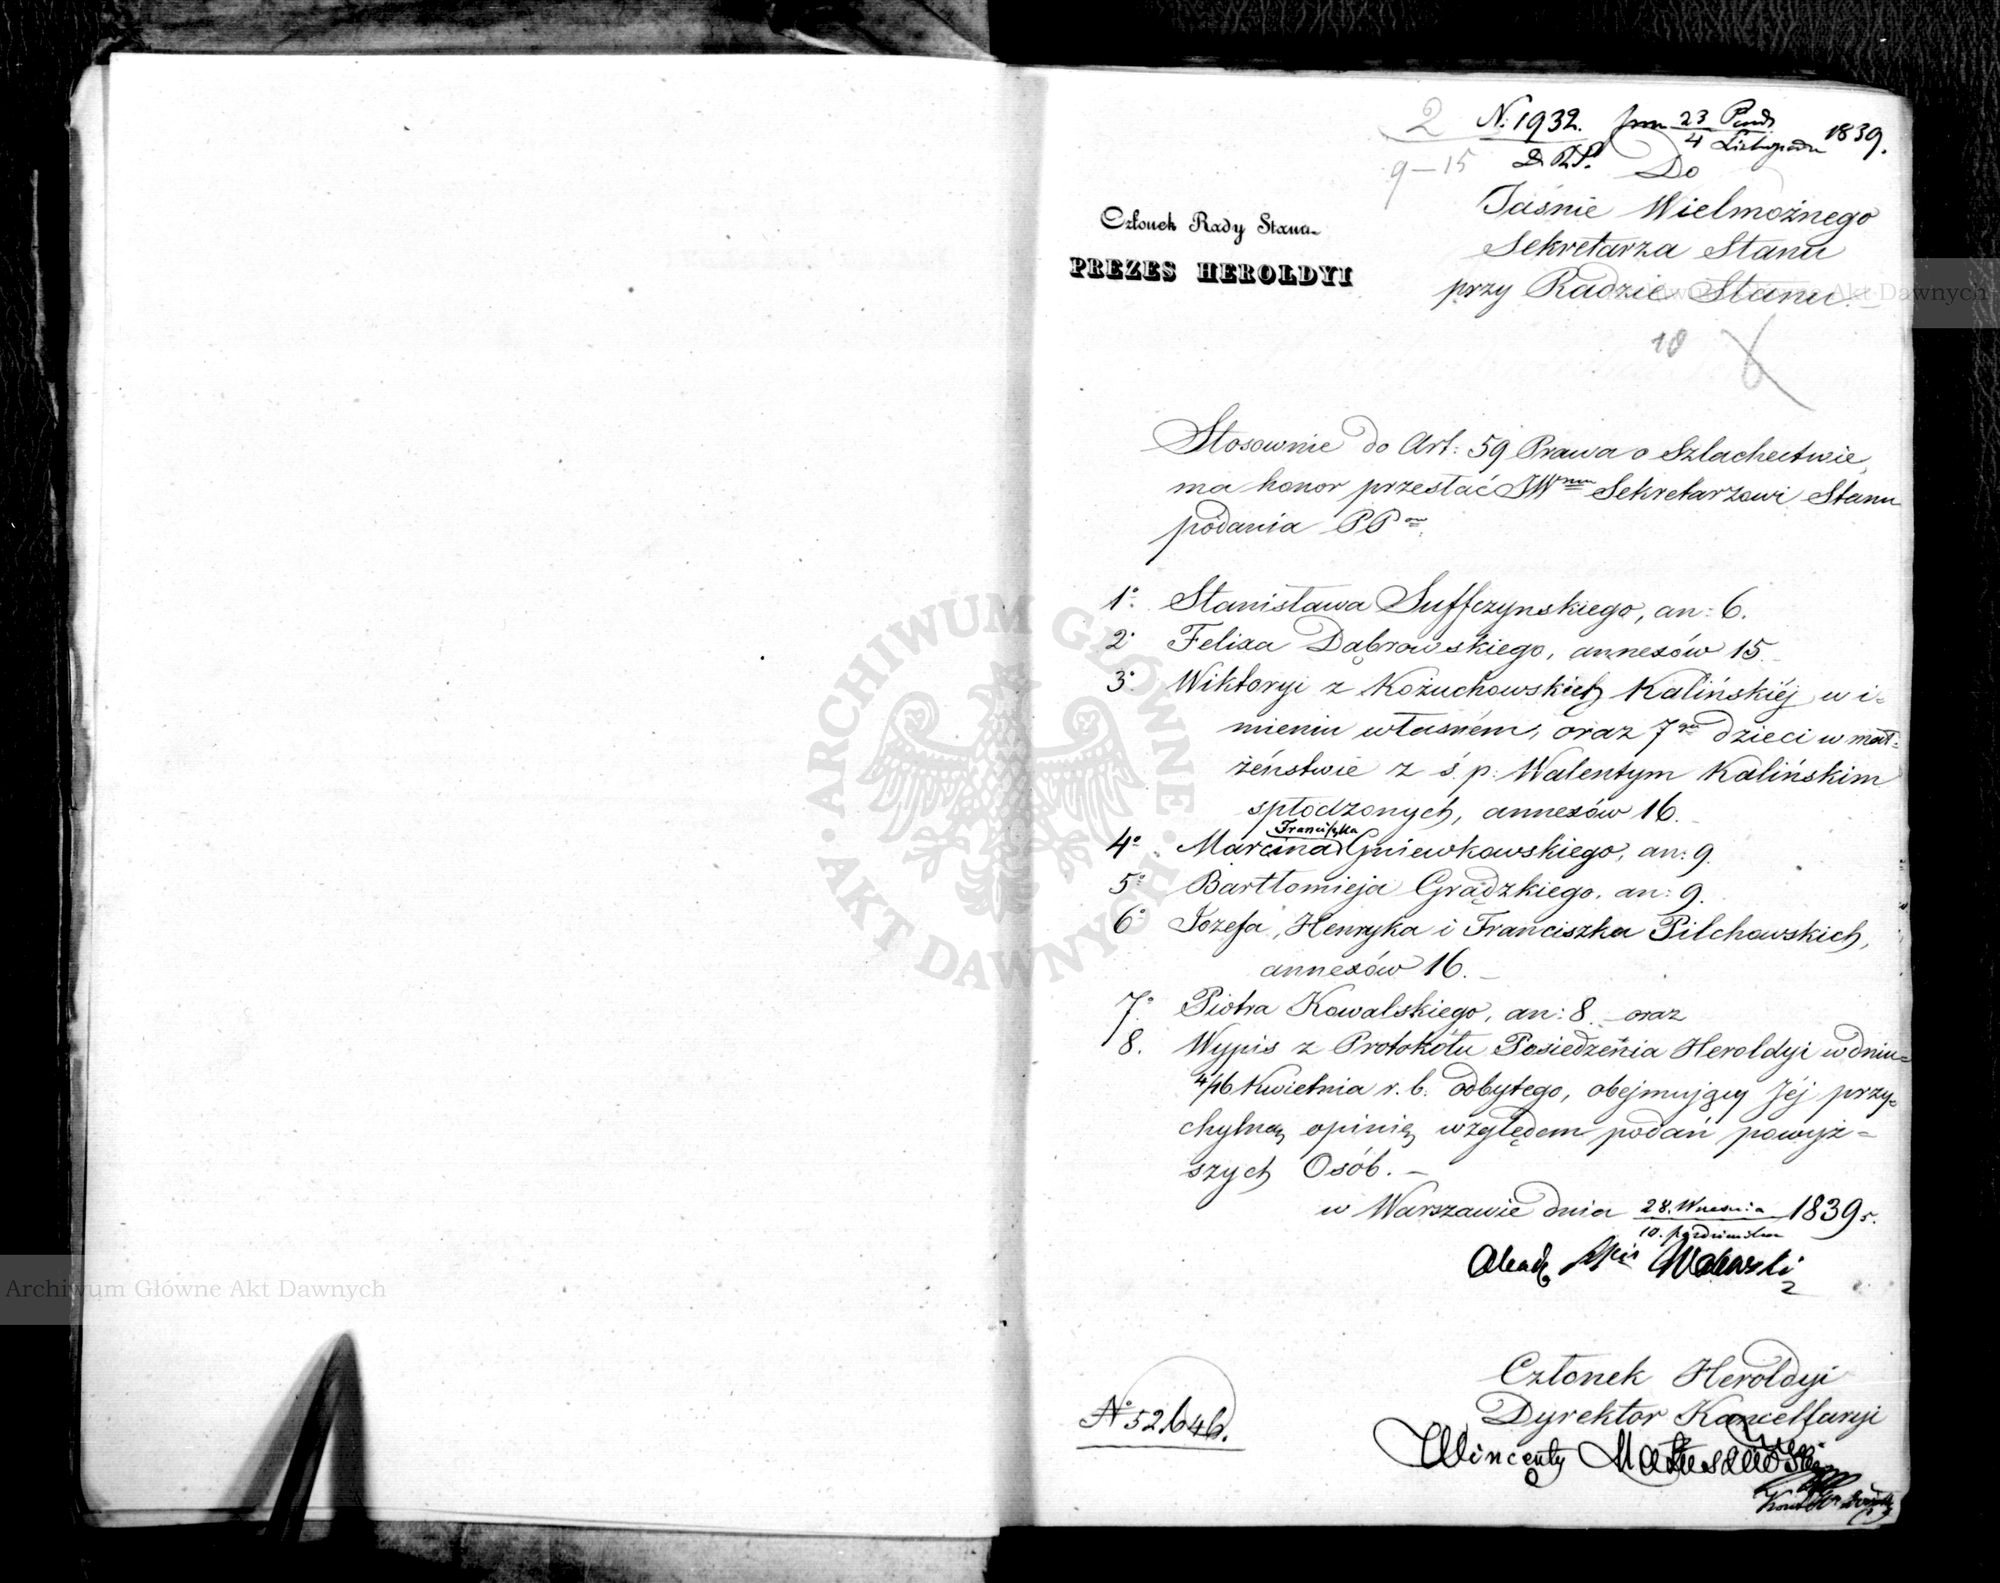 2 N. 1932. 23 Paźdz. 1839.
9–15 D.R.S. 4 Listopada
Do
Jaśnie Wielmożnego
Sekretarza Stanu
przy Radzie Stanu.
Członek Rady Stanu
PREZES HEROLDYI
10
Stosownie do Art: 59 Prawa o Szlachectwie,
ma honor przesłać JWmu Sekretarzowi Stanu
podania PPow.
1o Stanisława Suffczynskiego, an: 6.
2o Felixa Dąbrowskiego, annexów 15.
3o Wiktoryi z Kożuchowskich Kalińskiéj w i=
mieniu własném, oraz 7ga dzieci w mał=
żeństwie z ś. p: Walentym Kalińskim
spłodzonych, annexów 16.
Franciszka
4o Marcina Gniewkowskiego, an: 9.
5o Bartłomieja Grądzkiego, an: 9.
6o Józefa, Henryka i Franciszka Pilchowskich,
annexów 16.
7o Piotra Kowalskiego, an: 8. oraz
8. Wypis z Protokółu Posiedzenia Heroldyi w dniu
4/16 Kwietnia r. b. odbytego, obejmujący Jéj przy=
chylną opinię względem podań powyż=
szych Osób.
w Warszawie dnia 28. Września 1839 r.
10. października
Walewski
Członek Heroldyi
Dyrektor Kancellaryi
No 52646.
Wincenty Matuszewski
ARCHIWUM GŁÓWNE AKT DAWNYCH
Archiwum Główne Akt Dawnych
Archiwum Główne Akt Dawnych